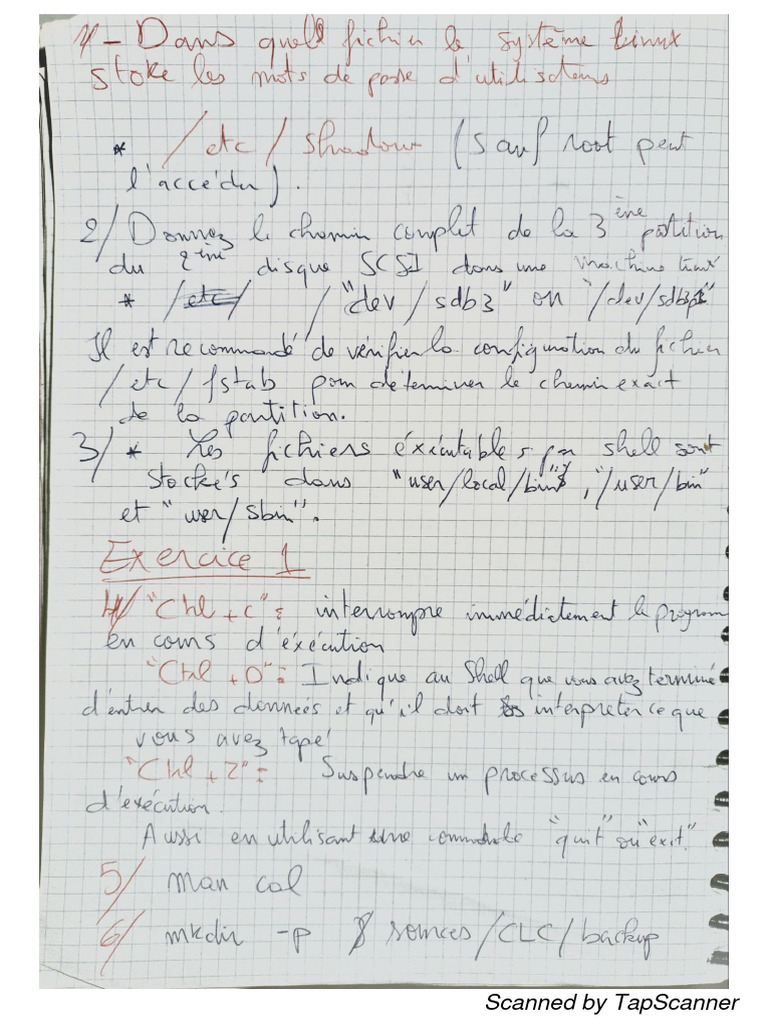 1/- Dans quell fichier le système Linux
stoke les mots de passe d'utilisateurs
* /etc/shadow (sauf root peut
l'accéder).
2/ Donnez le chemin complet de la 3ène partition
du 2ème disque SCSI dans une machine Linux
* /etc/ / "dev/sdb3" ou "/dev/sdb3"
Il est recommandé de vérifier la configuration du fichier
/etc/fstab pour déterminer le chemin exact
de la partition.
3/ * Les fichiers éxécutables par shell sont
stockés dans "user/local/bin", "/user/bin"
et "user/sbin".
Exercice 1
4/ "Ctrl + c": interrompre immédiatement le program
en cours d'éxécution
"Ctrl + D": Indique au Shell que vous avez terminé
d'entrer des données et qu'il doit interpréter ce que
vous avez tapé
"Ctrl + Z": Suspendre un processus en cours
d'exécution.
Aussi en utilisant une commande "quit" ou "exit"
5/ man cal
6/ mkdir -p sources/CLC/backup
Scanned by TapScanner